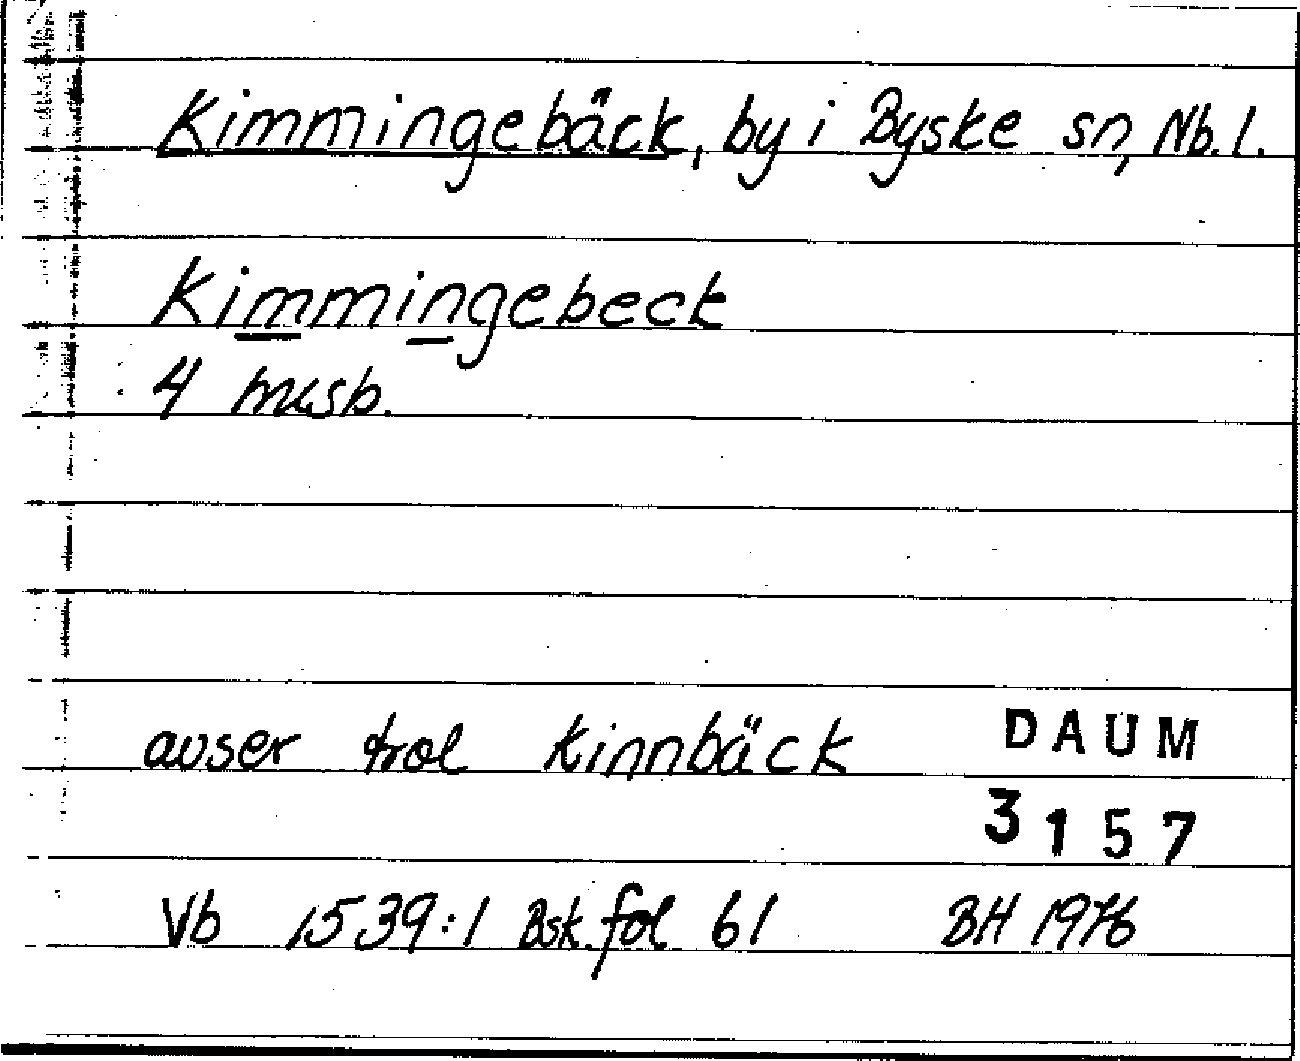 Kimmingebäck, by i Byske sn, Nb. l.
Kimmingebeck
4 mɛsb.
avser trol Kinnbäck
DAUM
3157
Vb 1539:1 Bsk. fol 61 BH 1976